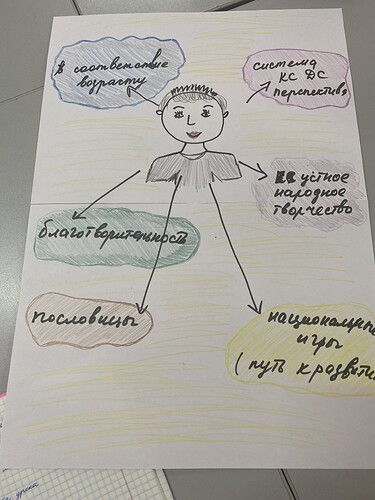 В соответствие
возрасту
система
КС ДС
перспектива
устное
народное
творчество
благотворительность
пословицы
национальные
игры
(путь к развити
урока